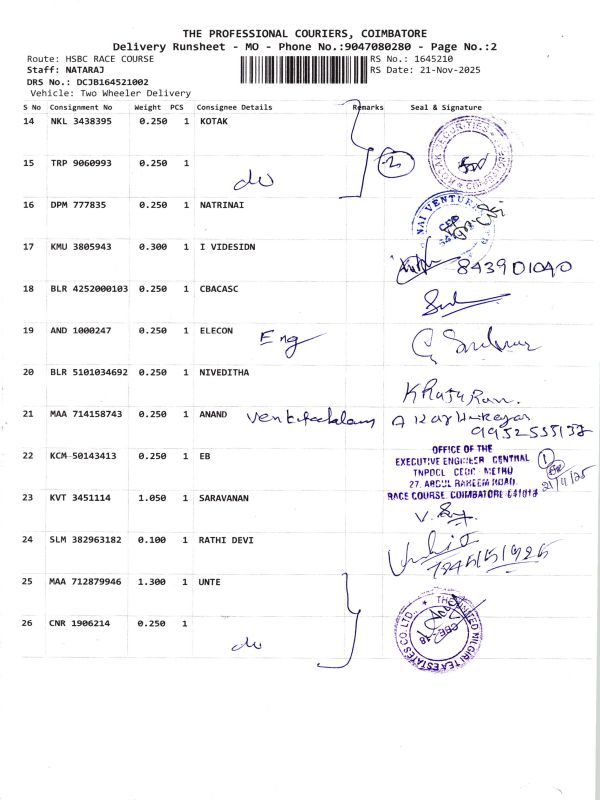 THE PROFESSIONAL COURIERS, COIMBATORE
Delivery Runsheet - MO - Phone No.:9047080280 - Page No.:2
Route: HSBC RACE COURSE RS No.: 1645210
Staff: NATARAJ RS Date: 21-Nov-2025
DRS No.: DCJB164521002
Vehicle: Two Wheeler Delivery
S No Consignment No Weight PCS Consignee Details Remarks Seal & Signature
14 NKL 3438395 0.250 1 KOTAK
15 TRP 9060993 0.250 1 do 2
16 DPM 777835 0.250 1 NATRINAI
17 KMU 3805943 0.300 1 I VIDESIDN 843901040
18 BLR 4252000103 0.250 1 CBACASC
19 AND 1000247 0.250 1 ELECON Eng
20 BLR 5101034692 0.250 1 NIVEDITHA
21 MAA 714158743 0.250 1 ANAND
22 KCM 50143413 0.250 1 EB
OFFICE OF THE
EXECUTIVE ENGINEER CENTRAL 1
TNPDCL CEDC METRO
27, ABDUL RAHEEM ROAD 21/11/25
RACE COURSE, COIMBATORE 641018
23 KVT 3451114 1.050 1 SARAVANAN
24 SLM 382963182 0.100 1 RATHI DEVI
25 MAA 712879946 1.300 1 UNTE
26 CNR 1906214 0.250 1 do
THE UNITED NILGIRI TEA ESTATES CO LTD.,
CBE-18